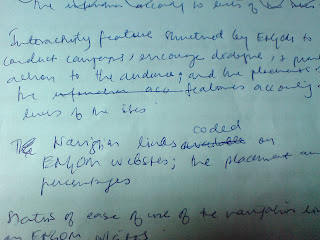 the information according to levels of the sites
Interactivity feature structured by ENGOs to
conduct campaigns, encourage dialogue, &
action to the audience; and the placement
the information acco features accordi
levels of the sites
The Navigation links available coded on
ENGOs websites; the placement an
percentages
Status of ease of use of the navigation lin
on ENGOs